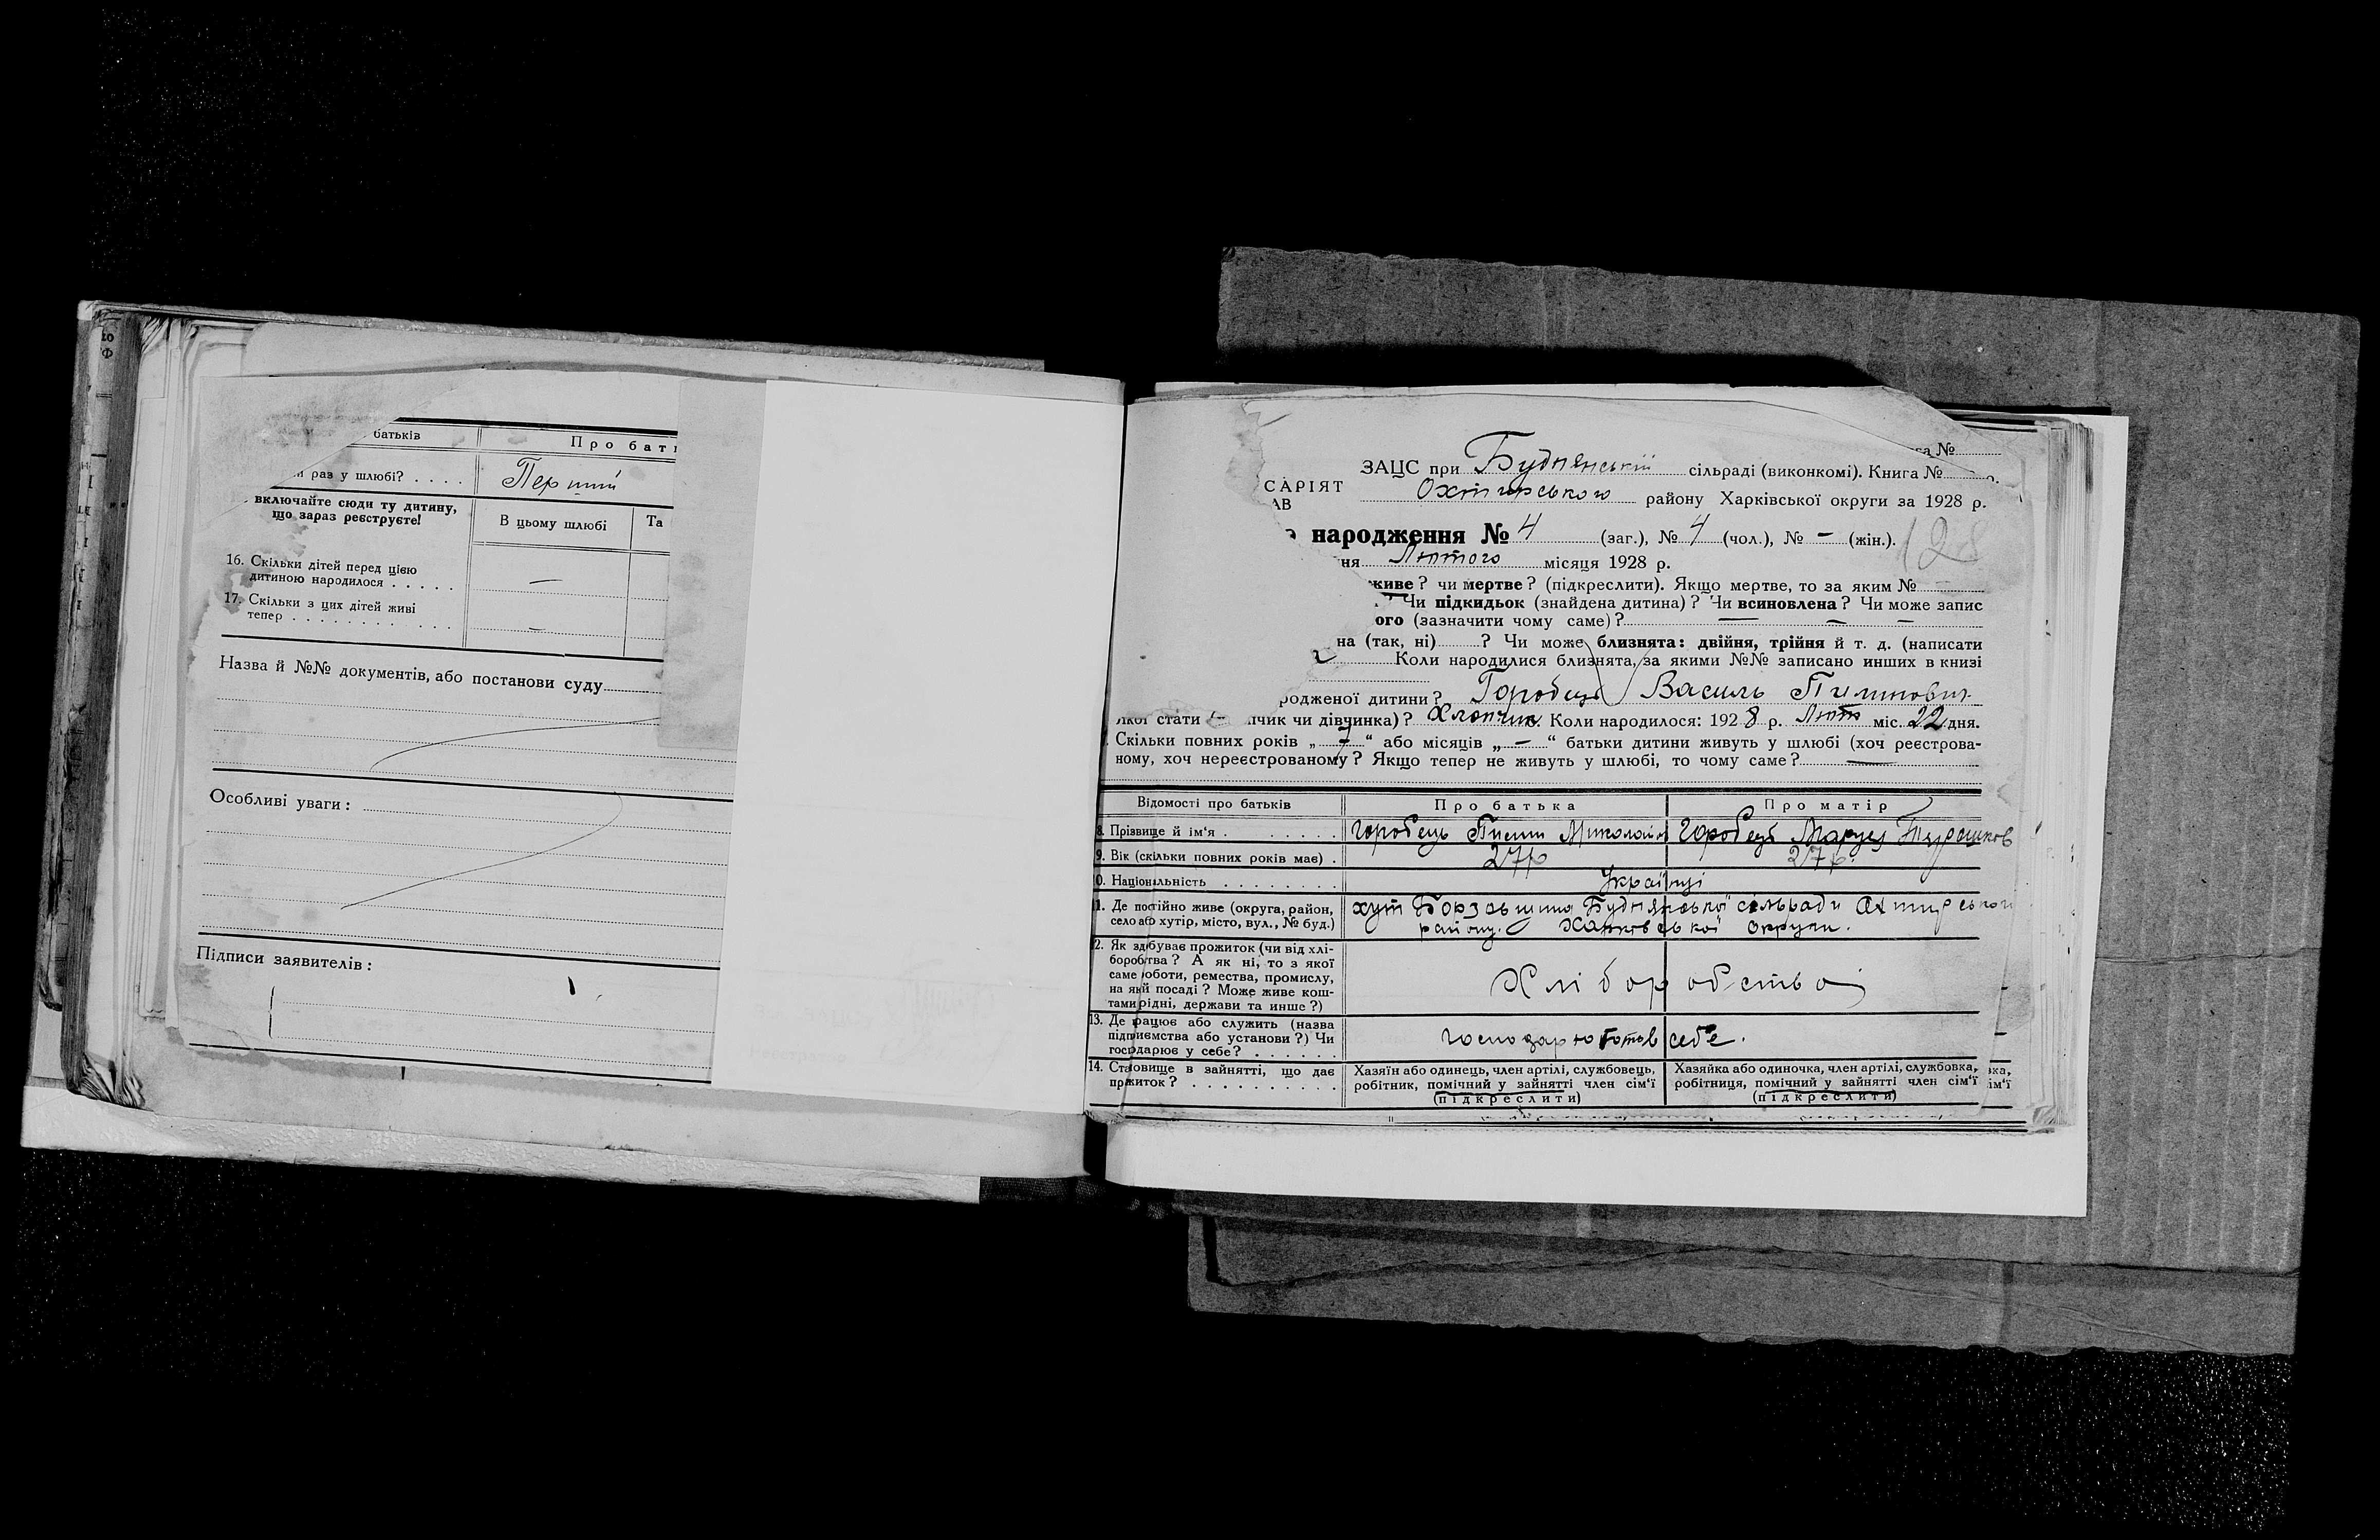 батьків
Про бать
раз у шлюбі? . . . .
Перший
включайте сюди ту дитину,
що зараз реєструєте!
В цьому шлюбі
Та
16. Скільки дітей перед цією
дитиною народилося . . . . .
—
17. Скільки з цих дітей живі
тепер . . . . . . . . . . .
—
Назва й №№ документів, або постанови суду
Особливі уваги:
Підписи заявителів:
ЗАЦС при Буднянській сільраді (виконкомі). Книга №
САРІЯТ
Охтирського району Харківської округи за 1928 р.
АВ
народження № 4 (заг.), № 4 (чол.), № — (жін.).
128
ня Лютого місяця 1928 р.
живе? чи мертве? (підкреслити). Якщо мертве, то за яким № —
Чи підкидьок (знайдена дитина)? Чи всиновлена? Чи може запис
ого (зазначити чому саме)? — — —
на (так, ні) ? Чи може близнята: двійня, трійня й т. д. (написати
Коли народилися близнята, за якими №№ записано инших в книзі
родженої дитини? Горобець Василь Пилипович
якої стати чик чи дівчинка)? Хлопчик. Коли народилося: 1928 р. Лют міс. 22 дня.
Скільки повних років „ 7 “ або місяців „ — “ батьки дитини живуть у шлюбі (хоч реєстрова-
ному, хоч нереєстрованому? Якщо тепер не живуть у шлюбі, то чому саме? —
Відомості про батьків
Про батька
Про матір
8. Прізвище й ім‘я . . . . . . .
Горобець Пилип Миколайов
Горобець Маруся
9. Вік (скільки повних років має) .
27р
27р.
10. Національність . . . . . . . .
Українці
11. Де постійно живе (округа, район,
село або хутір, місто, вул., № буд.)
хут Борзовщина Буднянської сільради Охтирського
району. Харківської округи.
12. Як здобуває прожиток (чи від хлі-
боробства? А як ні, то з якої
саме роботи, ремества, промислу,
на якій посаді? Може живе кош-
тами рідні, держави та инше?)
Хліборобство
13. Де працює або служить (назва
підприємства або установи?) Чи
господарює у себе? . . . . . .
господарюють в себе.
14. Становище в зайнятті, що дає
прожиток? . . . . . . . . . .
Хазяїн або одинець, член артілі, службовець,
робітник, помічний у зайнятті член сім‘ї
(підкреслити)
Хазяйка або одиночка, член артілі, службовка,
робітниця, помічний у зайнятті член сім‘ї
(підкреслити)